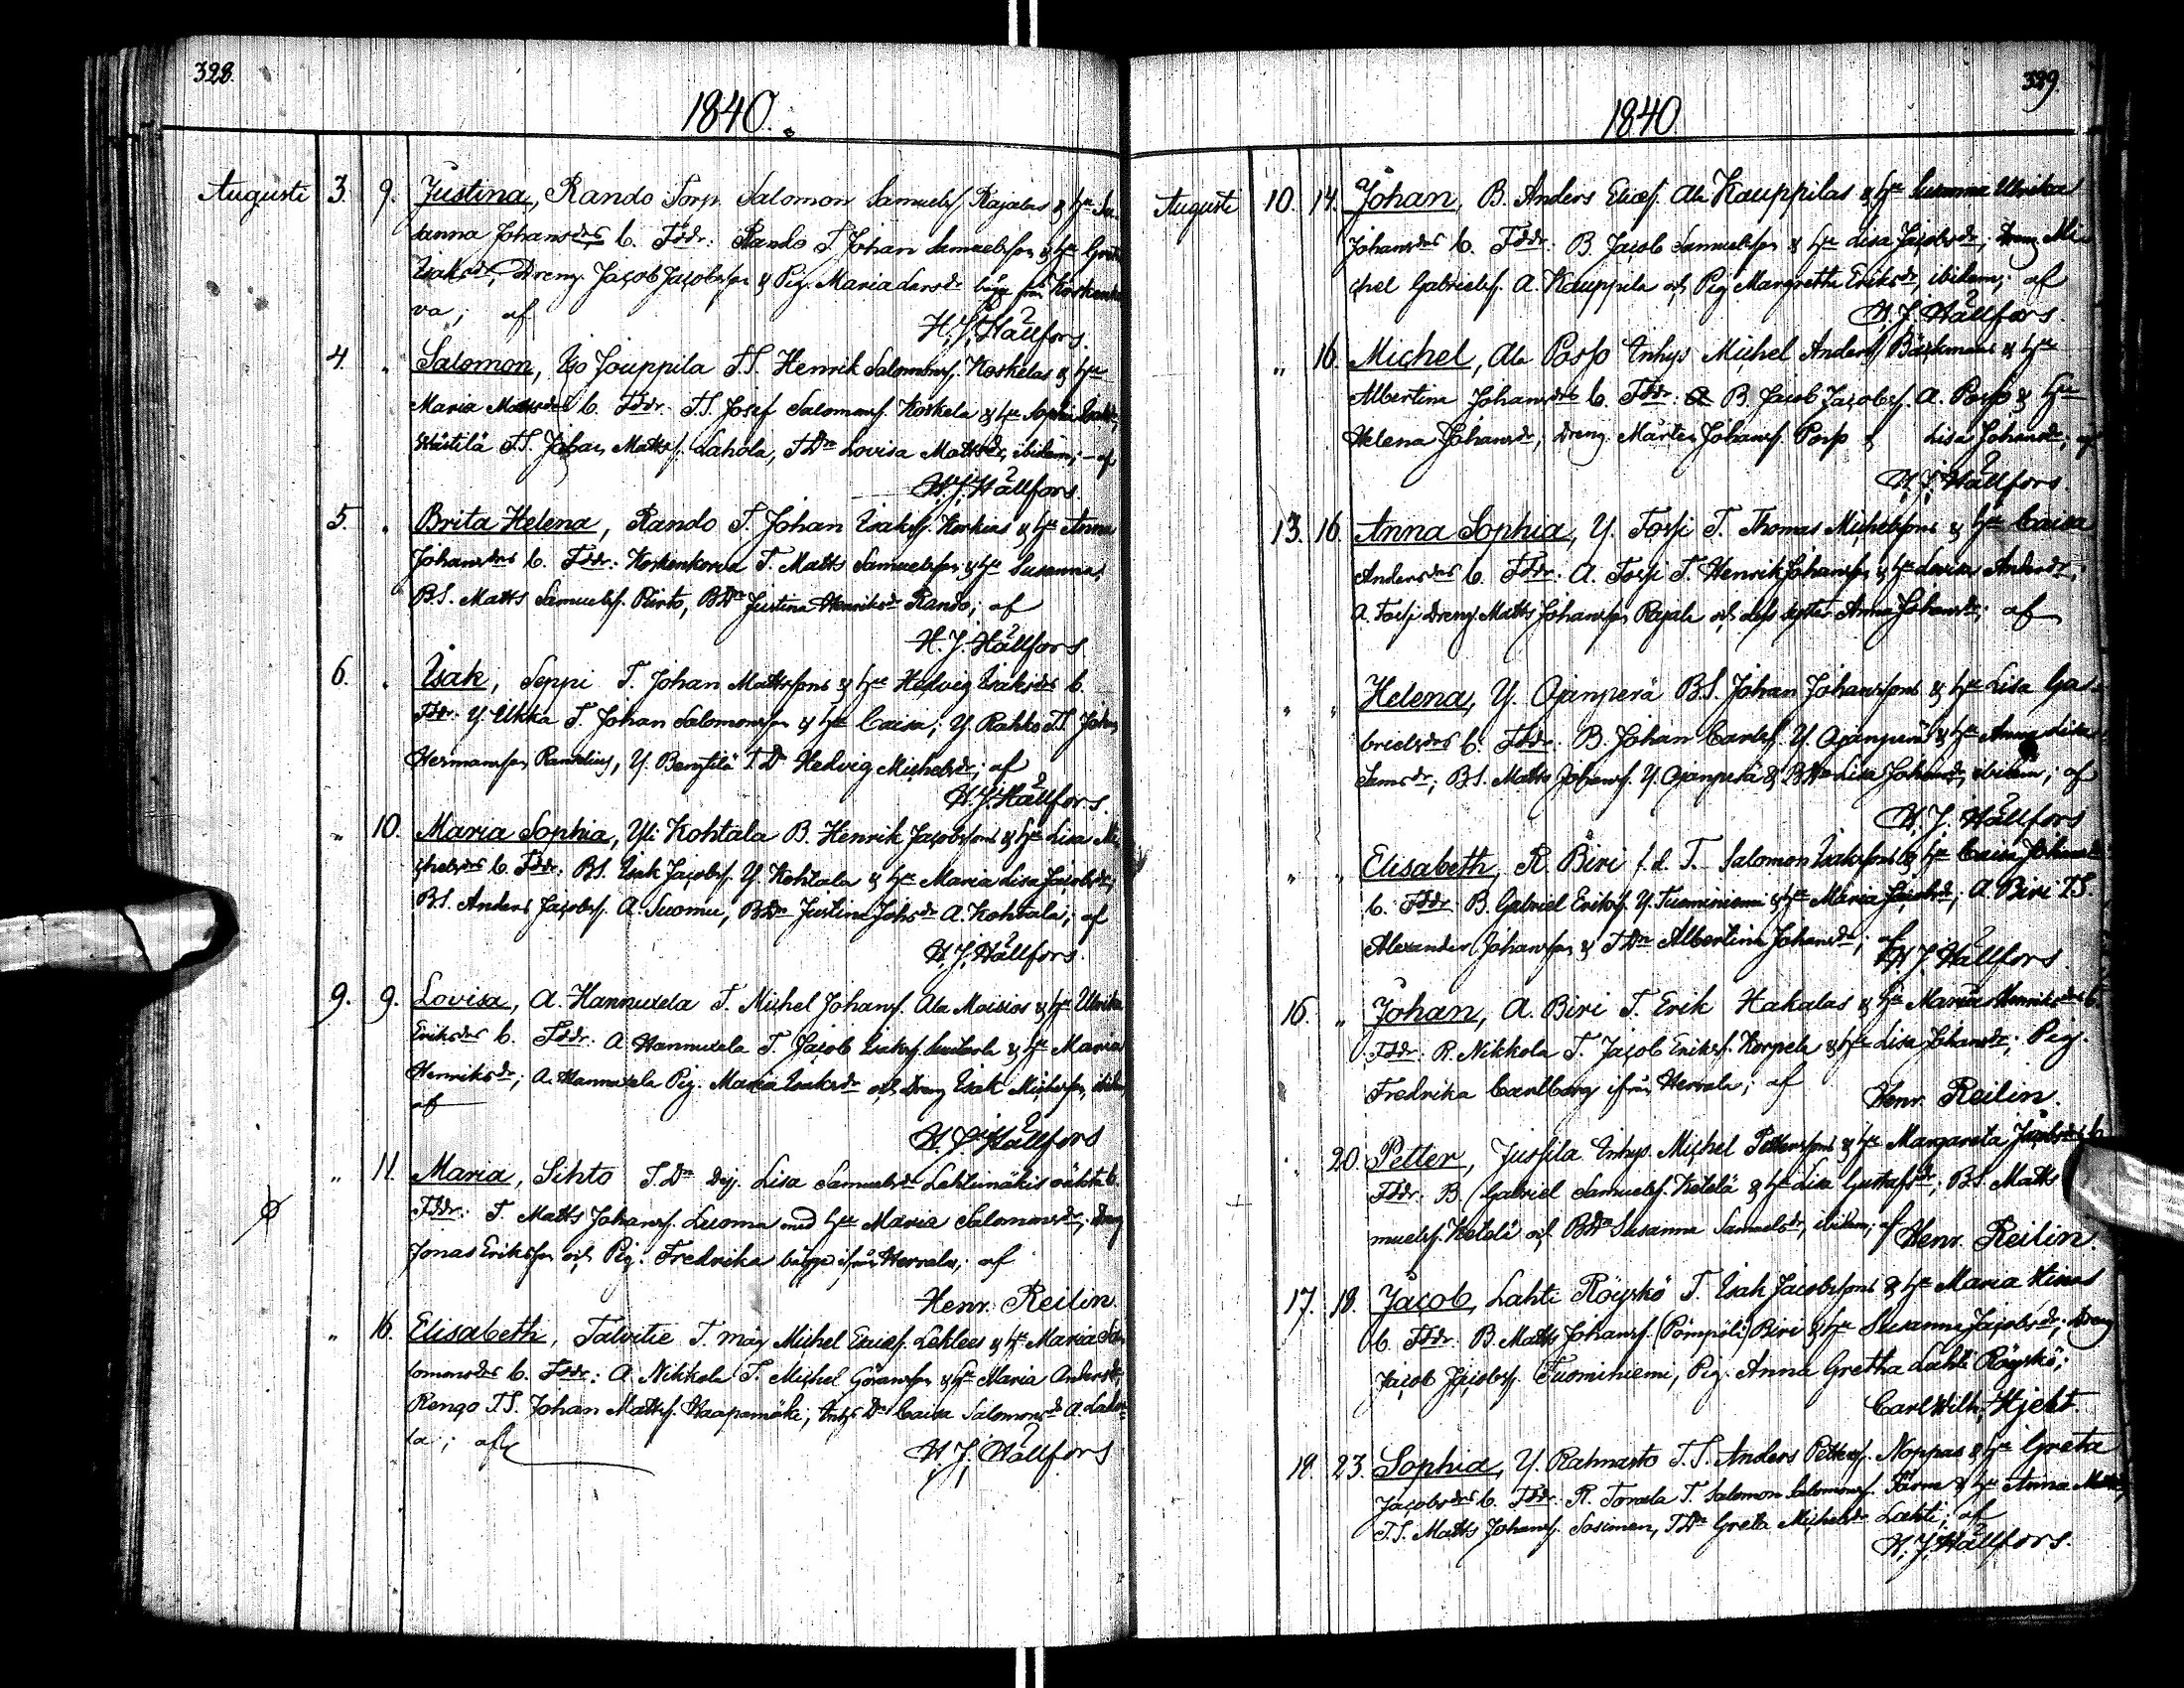 328.
1840.
Augusti 3. 9. Justina, Rando Torp. Salomon Samuelss. Rajalas & hu Su-
sanna Johansdrs b. Fddr: Rando T. Johan Samuelsson & hu Greta
Isaksdr, Dreng. Jacob Jacobsson & Pig. Maria Larsdr båge från Koskenkor-
va; af
H. J. Hällfors.
4. " Salomon, Iso Jouppila T.S. Henrik Salomonss. Koskelas & hu
Maria Mattsdrs b. Fddr: T.S. Josef Salomonss. Koskela & hu Sophia Isaksdr,
T.S. Johan Mattss. Lahola, TDr Lovisa Mattsdr, ibidem; af
H. J. Hällfors.
5. " Brita Helena, Rando T. Johan Isakss. Korkias & hu Anna
Johansdrs b. Fddr: Koskenkorva T. Matts Samuelsson & hu Susanna,
B.S. Matts Samuelss. Pirto, BDr Justina Henriksdr Rando; af
H. J. Hällfors
6. " Isak, Seppi T. Johan Mattssons & hu Hedvig Isaksdrs b.
Fddr: Y. Ukka T. Johan Salomonsson & hu Caisa; Y. Rahko T.S. Johan
Hermansson, Y. T.Dr Hedvig Michelsdr; af
H. J. Hällfors.
" 10. Maria Sophia, Yli Kohtala B. Henrik Jacobssons & hu Lisa Mi-
chelsdrs b. Fddr: BS. Isak Jacobss. Y. Kohtala & hu Maria Lisa Jacobsdr,
BS. Anders Jacobss. A. Suomu, BDr Justina Johsdr A. Kohtala; af
H. J. Hällfors.
9. 9. Lovisa, A. Hannuxela T. Michel Johanss. Ala Moisios & hu Ulrika
Eriksdrs b. Fddr: A. Hannuxela T. Jacob Isakss. & hu Maria
Henriksdr; A. Hannuxela Pig. Maria Isaksdr och Dreng Isak Michelsson, ibidem,
af
H. J. Hällfors
" 11. Maria, Sihto T.Dr Lisa Samuelsdr Lehtimäkis oäkta b.
Fddr: T. Matts Johanss. Luoma med hu Maria Salomonsdr, Dreng
Jonas Eriksson och Pig. Fredrika bägge ifrån Herrala; af
Henr. Reilin
" 16. Elisabeth, Talvitie T. måg Michel & hu Maria Sa-
lomonsdrs b. Fddr: A. Nikkola T. Michel Göransson & hu Maria Andersdr,
Rengo T.S. Johan Mattss. Haapamäki, Inhs Dr Caisa Salomonsdr A. Laho-
la; af
H. J. Hällfors
329.
1840
Augusti 10. 14. Johan, B. Anders Eliæs. Ala Kauppilas & hu Susanna Ulrika
Johansdrs b. Fddr: B. Jacob Samuelsson & hu Lisa Jacobsdr; Dreng Mi-
chel Gabrielss. A. Kauppila och Pig Margretha Eriksdr, ibidem; af
H. J. Hällfors.
" 16. Michel, Ala Posso Inhys Michel Anderss Bäckmans & hu
Albertina Johansdrs b. Fddr: B. Jacob Jacobss. A. Posso & hu
Helena Johansdr; Dreng Mårten Johanss. Posso & Lisa Johansdr; af
H. J. Hällfors.
13. 16. Anna Sophia, Y. Torsi T. Thomas Michelssons & hu Caisa
Andersdrs b. Fddr: A. Torsi T. Henrik Johansson & hu Lovisa Andersdr;
A. Torsi Dreng Matts Johansson Rajala och dess syster Anna Johansdr; af
" " Helena, Y. Ojanperä BS. Johan Johanssons & hu Lisa Ga-
brielsdrs b. Fddr: B. Johan Carlss. Y. Ojanperä & hu Anna Lisa
Samsdr; BS. Matts Johanss. Y. Ojanperä & BDr Lisa Johansdr, ibidem; af
H. J. Hällfors
" " Elisabeth, R. Biri f.d. T. Salomon Isakssons & hu Caisa Johansdr
b. Fddr: B. Gabriel Erikss. Y. Tuominiemi & hu Maria Jacobsdr, A. Biri T.S.
Alexander Johansson & TDr Albertina Johansdr; af
H. J. Hällfors.
16. " Johan, A. Biri T. Erik Hakalas & hu Maria Henriksdrs b.
Fddr: R. Nikkola T. Jacob Erikss. Korpela & hu Lisa Johansdr; Pig.
Fredrika Carlberg ifrån Herrala; af
Henr. Reilin.
" 20. Petter, Jussila Inhys. Michel Petterssons & hu Margareta Jacobsdrs b.
Fddr: B. Gabriel Samuelss. Ketelä & hu Lisa Gustafsdr, BS. Matts
muelss. Ketelä och BDr Susanna Samuelsdr, ibidem; af Henr. Reilin.
17. 18. Jacob, Lahti Röyskö T. Isak Jacobssons & hu Maria
b. Fddr: B. Matts Johanss. (Pömpöli) Biri & hu Susanna Jacobsdr; Dreng
Jacob Jacobss. Tuominiemi, Pig. Anna Gretha Lahti Röyskö;
Carl Wilh. Hjelt.
19. 23. Sophia, Y. Rahnasto T.S. Anders Petterss. Noppas & hu Greta
Jacobsdrs b. Fddr: R. T. Salomon Salomonss. & hu Anna
T.S. Matts Johanss. Sosinen, TDr Greta Michelsdr Lahti; af
H. J. Hällfors.